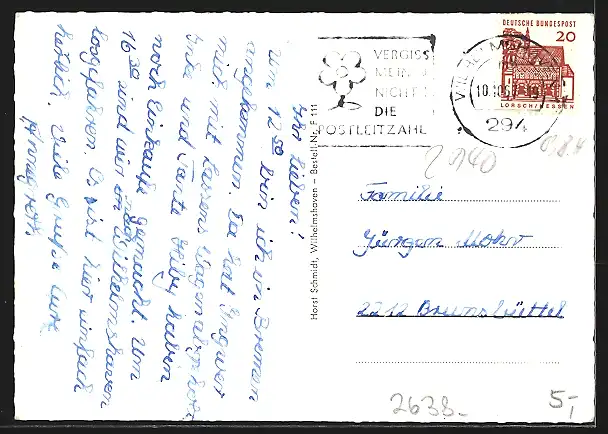 Ihr Lieben!
um 12 30 bin ich in Bremen
angekommen. Da hat Ingwer
mich mit Wagen abgeholt
Inke und Tante Hiby haben
noch Einkäufe gemacht. Um
16 30 sind wir n. Wilhelmshaven
losgefahren. Es ist hier einfach
herrlich. Viele Grüße Eure
Annegret.
Horst Schmidt, Wilhelmshaven – Bestell.Nr. F 111
VERGISS
MEIN
NICHT
DIE
POSTLEITZAHL
WILHELMSHAVEN
10.10.67
294
DEUTSCHE BUNDESPOST
20
LORSCH/HESSEN
Familie
Jürgen Mohr
2212 Brunsbüttel
2638-
5,-